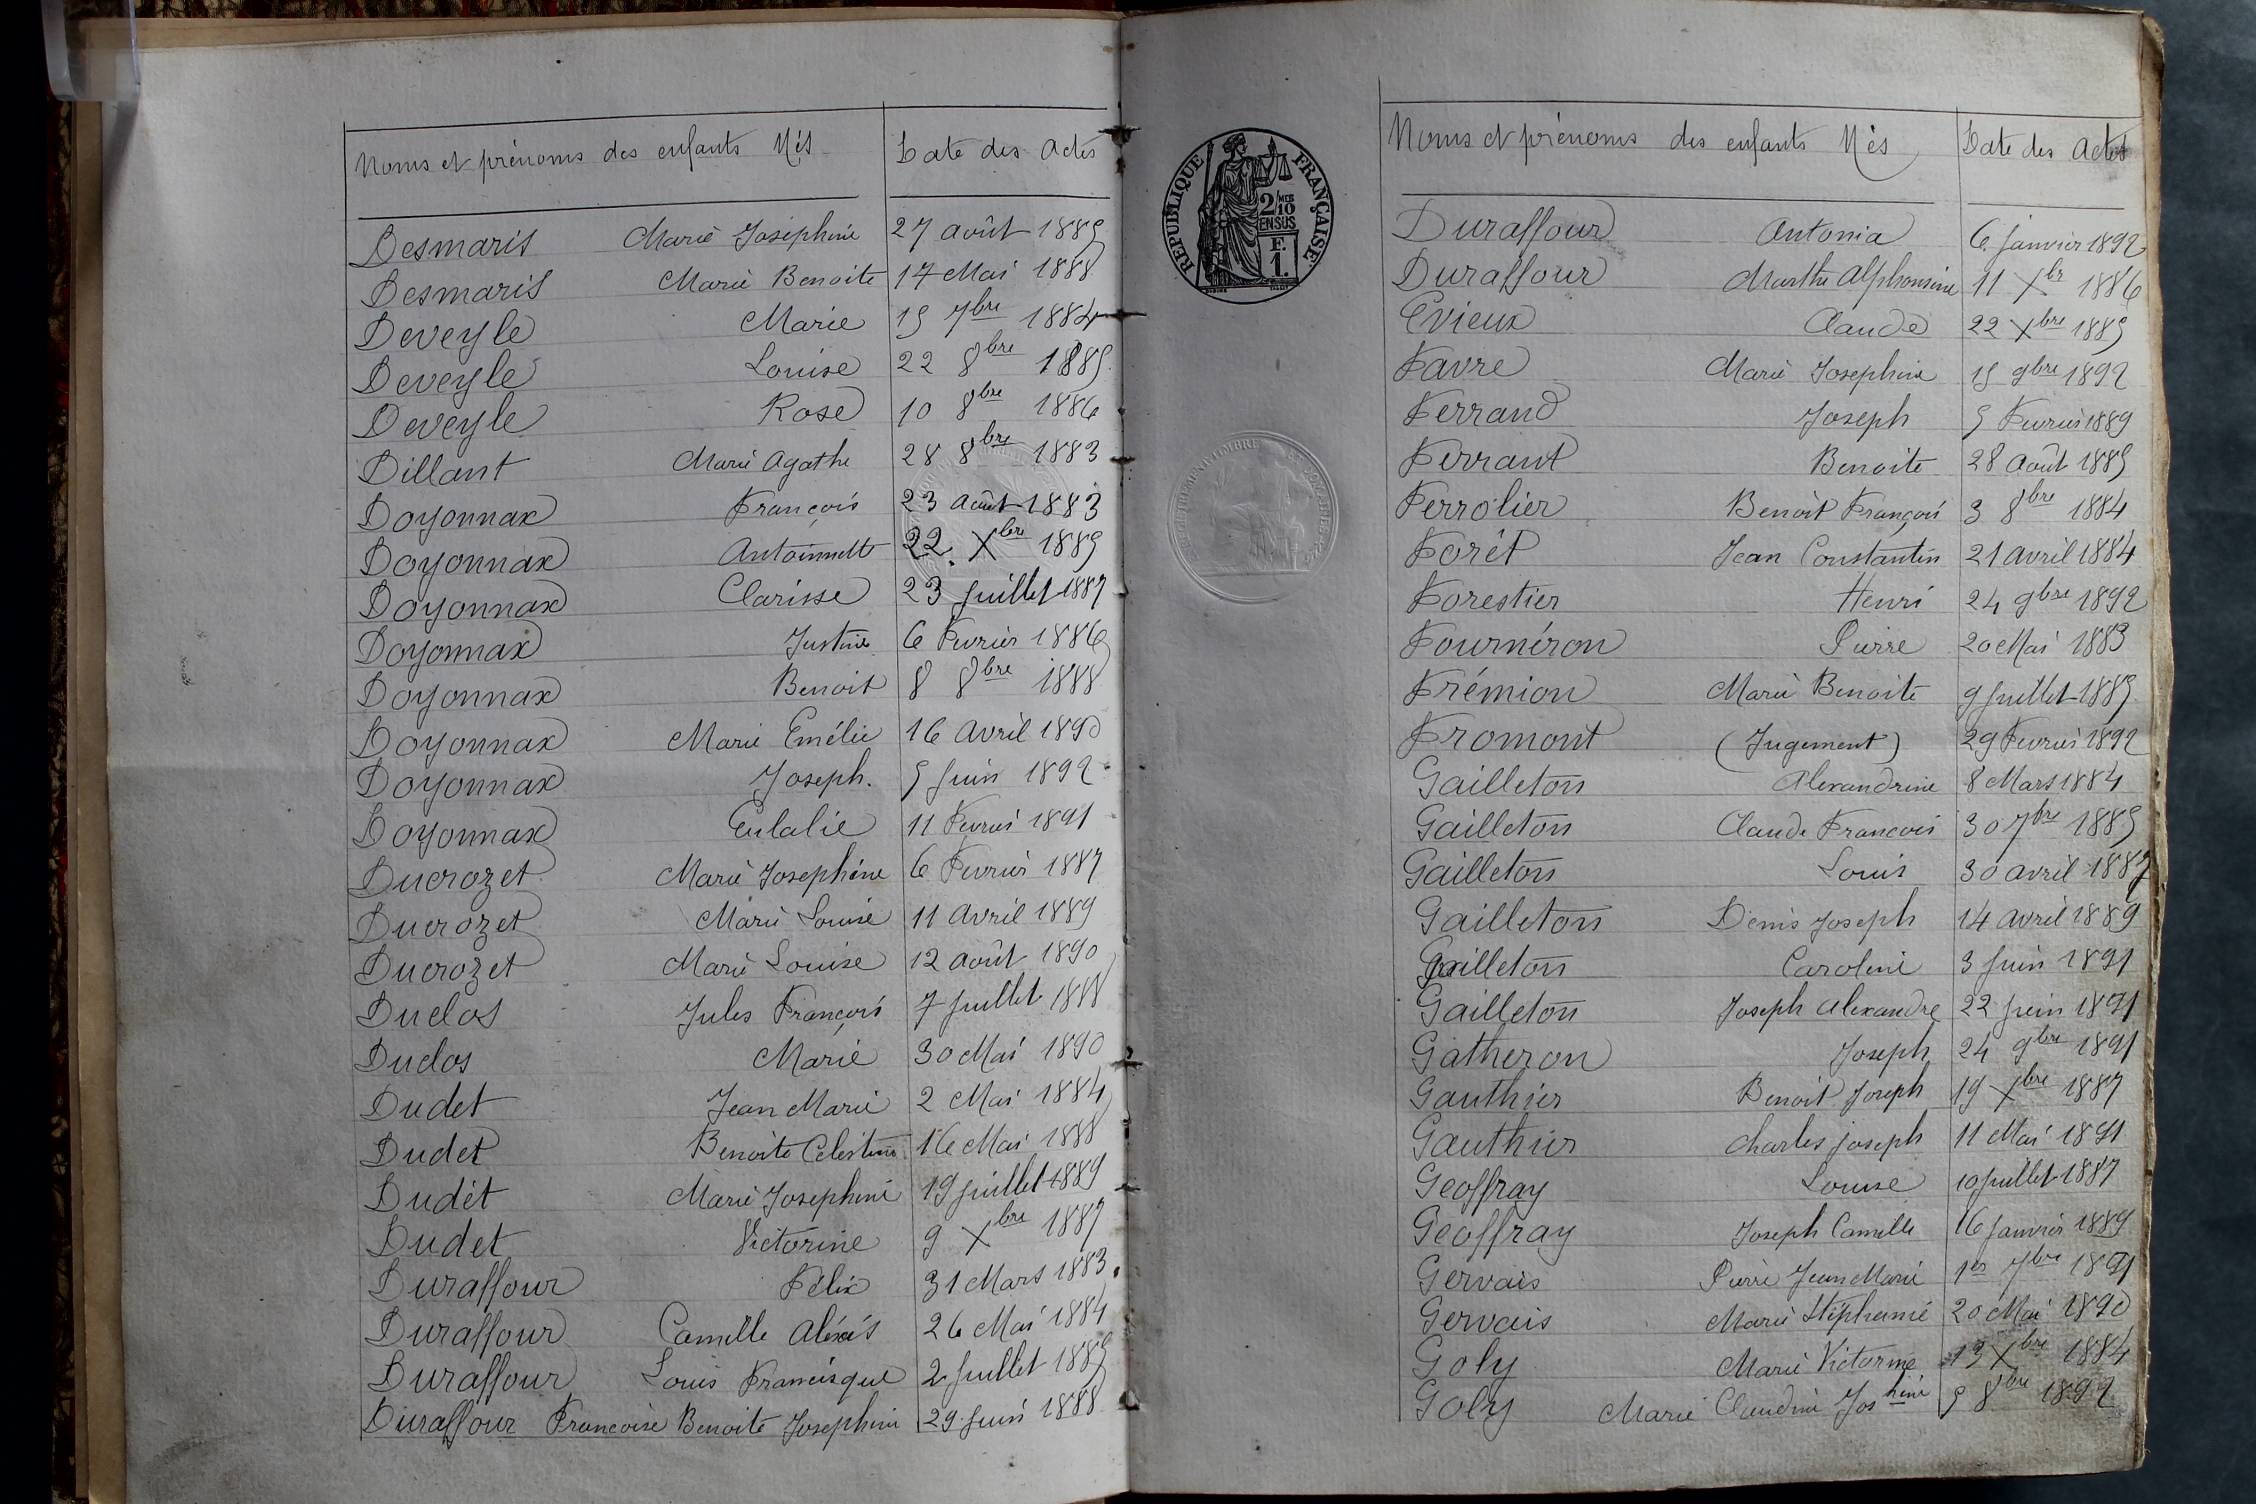 Noms et prénoms des enfants Nés Date des Actes
Desmaris Marie Joséphine 27 août 1885
Desmaris Marie Benoite 17 Mai 1888
Deveyle Marie 15 7bre 1884
Deveyle Louise 22 8bre 1885
Deveyle Rose 10 8bre 1886
Dillant Marie Agathe 28 8bre 1883
Doyonnax François 23 Août 1883
Doyonnax Antoinette 22 Xbre 1885
Doyonnax Clarisse 23 Juillet 1887
Doyonnax Justine 6 Fevrier 1886
Doyonnax Benoit 8 8bre 1888
Doyonnax Marie Emélie 16 Avril 1890
Doyonnax Joseph. 5 Juin 1892
Doyonnax Eulalie 11 Fevrier 1891
Ducrozet Marie Joséphine 6 Fevrier 1887
Ducrozet Marie Louise 11 Avril 1889
Ducrozet Marie Louise 12 août 1890
Duclos Jules François 7 Juillet 1888
Duclos Marie 30 Mai 1890
Dudet Jean Marie 2 Mai 1884
Dudet Benoite Célestine 16 Mai 1888
Dudet Marie Josephine 19 Juillet 1889
Dudet Victorine 9 Xbre 1887
Duraffour Félix 31 Mars 1883
Duraffour Camille Aléxis 26 Mai 1884
Duraffour Louis Francisque 2 Juillet 1885
Duraffour Francoise Benoite Josephine 29 Juin 1888
RÉPUBLIQUE FRANÇAISE
2/10 MES
EN SUS
F.
1.
Noms et prénoms des enfants Nés Date des Actes
Duraffour Antonia 6 Janvier 1892
Duraffour Marthe Alphonsine 11 Xbr 1886
Evieux Claude 22 Xbre 1885
Favre Marie Josephine 15 9bre 1892
Ferrand Joseph 5 Fevrier 1889
Ferrant Benoite 28 Août 1885
Ferrolier Benoit François 3 8bre 1884
Forêt Jean Constantin 21 avril 1884
Forestier Henri 24 9bre 1892
Fournéron Pierre 20 Mai 1883
Frémion Marie Benoite 9 Juillet 1885
Fromont (Jugement) 29 Fevrier 1892
Gailleton Alexandrine 8 Mars 1884
Gailleton Claude François 30 7bre 1885
Gailleton Louis 30 avril 1887
Gailleton Denis Joseph 14 avril 1889
Gailleton Caroline 3 Juin 1891
Gailleton Joseph Alexandre 22 Juin 1891
Gatheron Joseph 24 9bre 1891
Gauthier Benoit Joseph 19 Xbre 1887
Gauthier Charles joseph 11 Mai 1891
Geoffray Louise 10 Juillet 1887
Geoffray Joseph Camille 16 Janvier 1889
Gervais Pierre Jean Marie 1er 7bre 1891
Gervais Marie Stéphanie 20 Mai 1890
Goly Marie Victorine 13 Xbre 1884
Goly Marie Claudine Joshine 5 8bre 1892